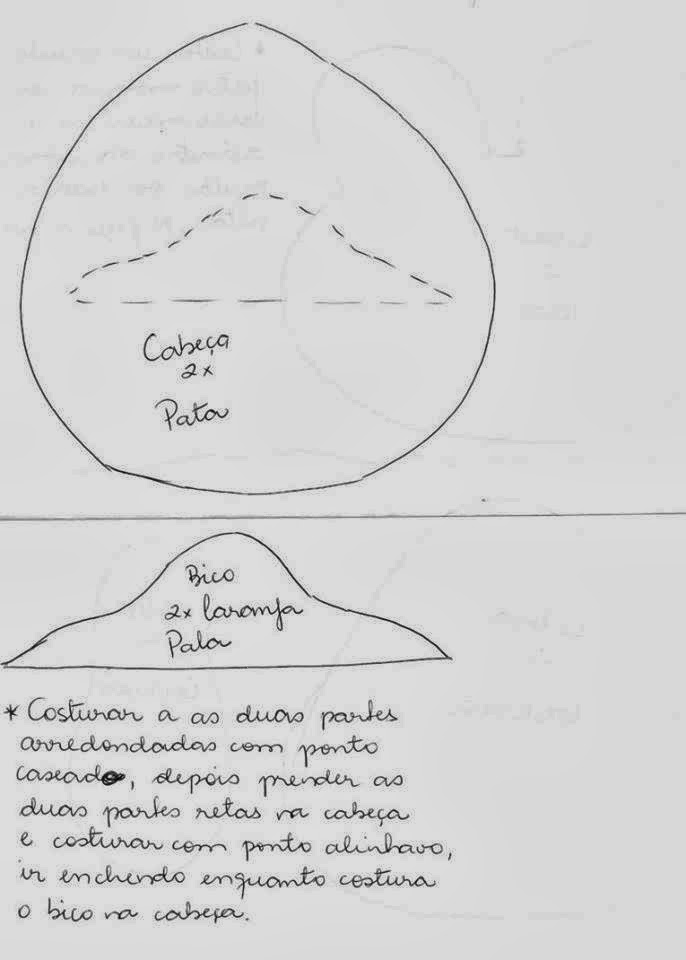 Cabeça
2x
Pata
Bico
2x laranja
Pata
* Costurar a as duas partes
arredondadas com ponto
caseado, depois prender as
duas partes retas na cabeça
e costurar com ponto alinhavo,
ir enchendo enquanto costura
o bico na cabeça.